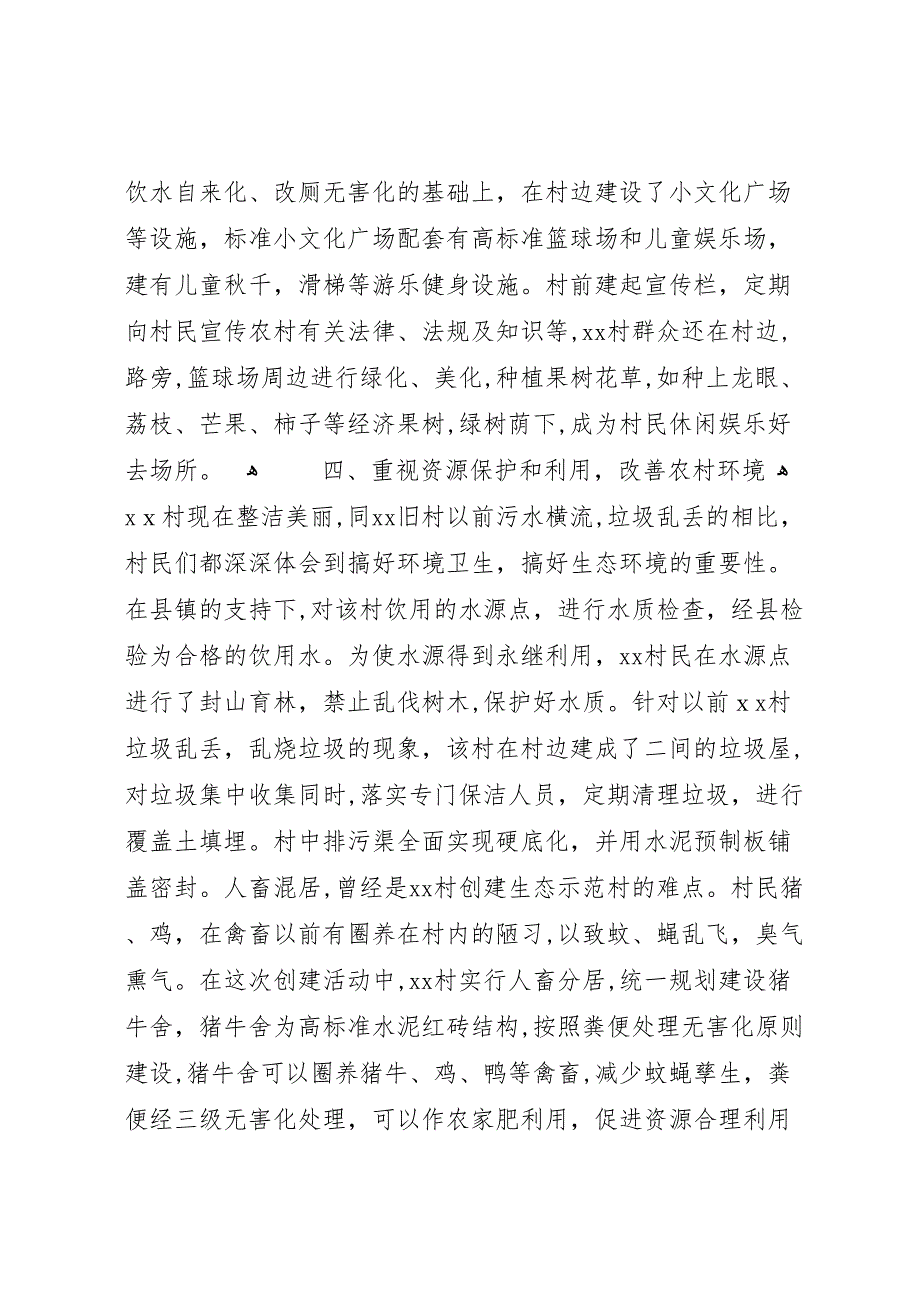 饮水自来化、改厕无害化的基础上，在村边建设了小文化广场
等设施，标准小文化广场配套有高标准篮球场和儿童娱乐场，
建有儿童秋千，滑梯等游乐健身设施。村前建起宣传栏，定期
向村民宣传农村有关法律、法规及知识等,xx村群众还在村边,
路旁,篮球场周边进行绿化、美化,种植果树花草,如种上龙眼、
荔枝、芒果、柿子等经济果树,绿树荫下,成为村民休闲娱乐好
去场所。 ﻫ 四、重视资源保护和利用，改善农村环境 ﻫ
xｘ村现在整洁美丽,同xx旧村以前污水横流,垃圾乱丢的相比，
村民们都深深体会到搞好环境卫生，搞好生态环境的重要性。
在县镇的支持下,对该村饮用的水源点，进行水质检查，经县检
验为合格的饮用水。为使水源得到永继利用，xx村民在水源点
进行了封山育林，禁止乱伐树木,保护好水质。针对以前ｘx村
垃圾乱丢，乱烧垃圾的现象，该村在村边建成了二间的垃圾屋,
对垃圾集中收集同时,落实专门保洁人员，定期清理垃圾，进行
覆盖土填埋。村中排污渠全面实现硬底化，并用水泥预制板铺
盖密封。人畜混居,曾经是xx村创建生态示范村的难点。村民猪
、鸡，在禽畜以前有圈养在村内的陋习,以致蚊、蝇乱飞，臭气
熏气。在这次创建活动中,xx村实行人畜分居,统一规划建设猪
牛舍，猪牛舍为高标准水泥红砖结构,按照粪便处理无害化原则
建设,猪牛舍可以圈养猪牛、鸡、鸭等禽畜,减少蚊蝇孳生，粪
便经三级无害化处理，可以作农家肥利用，促进资源合理利用